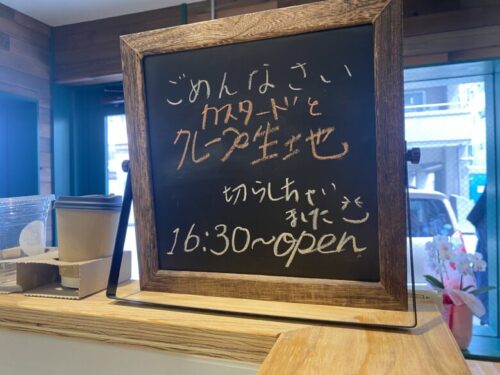 ごめんなさい
カスタードと
クレープ生地
切らしちゃい
ました
16:30~open